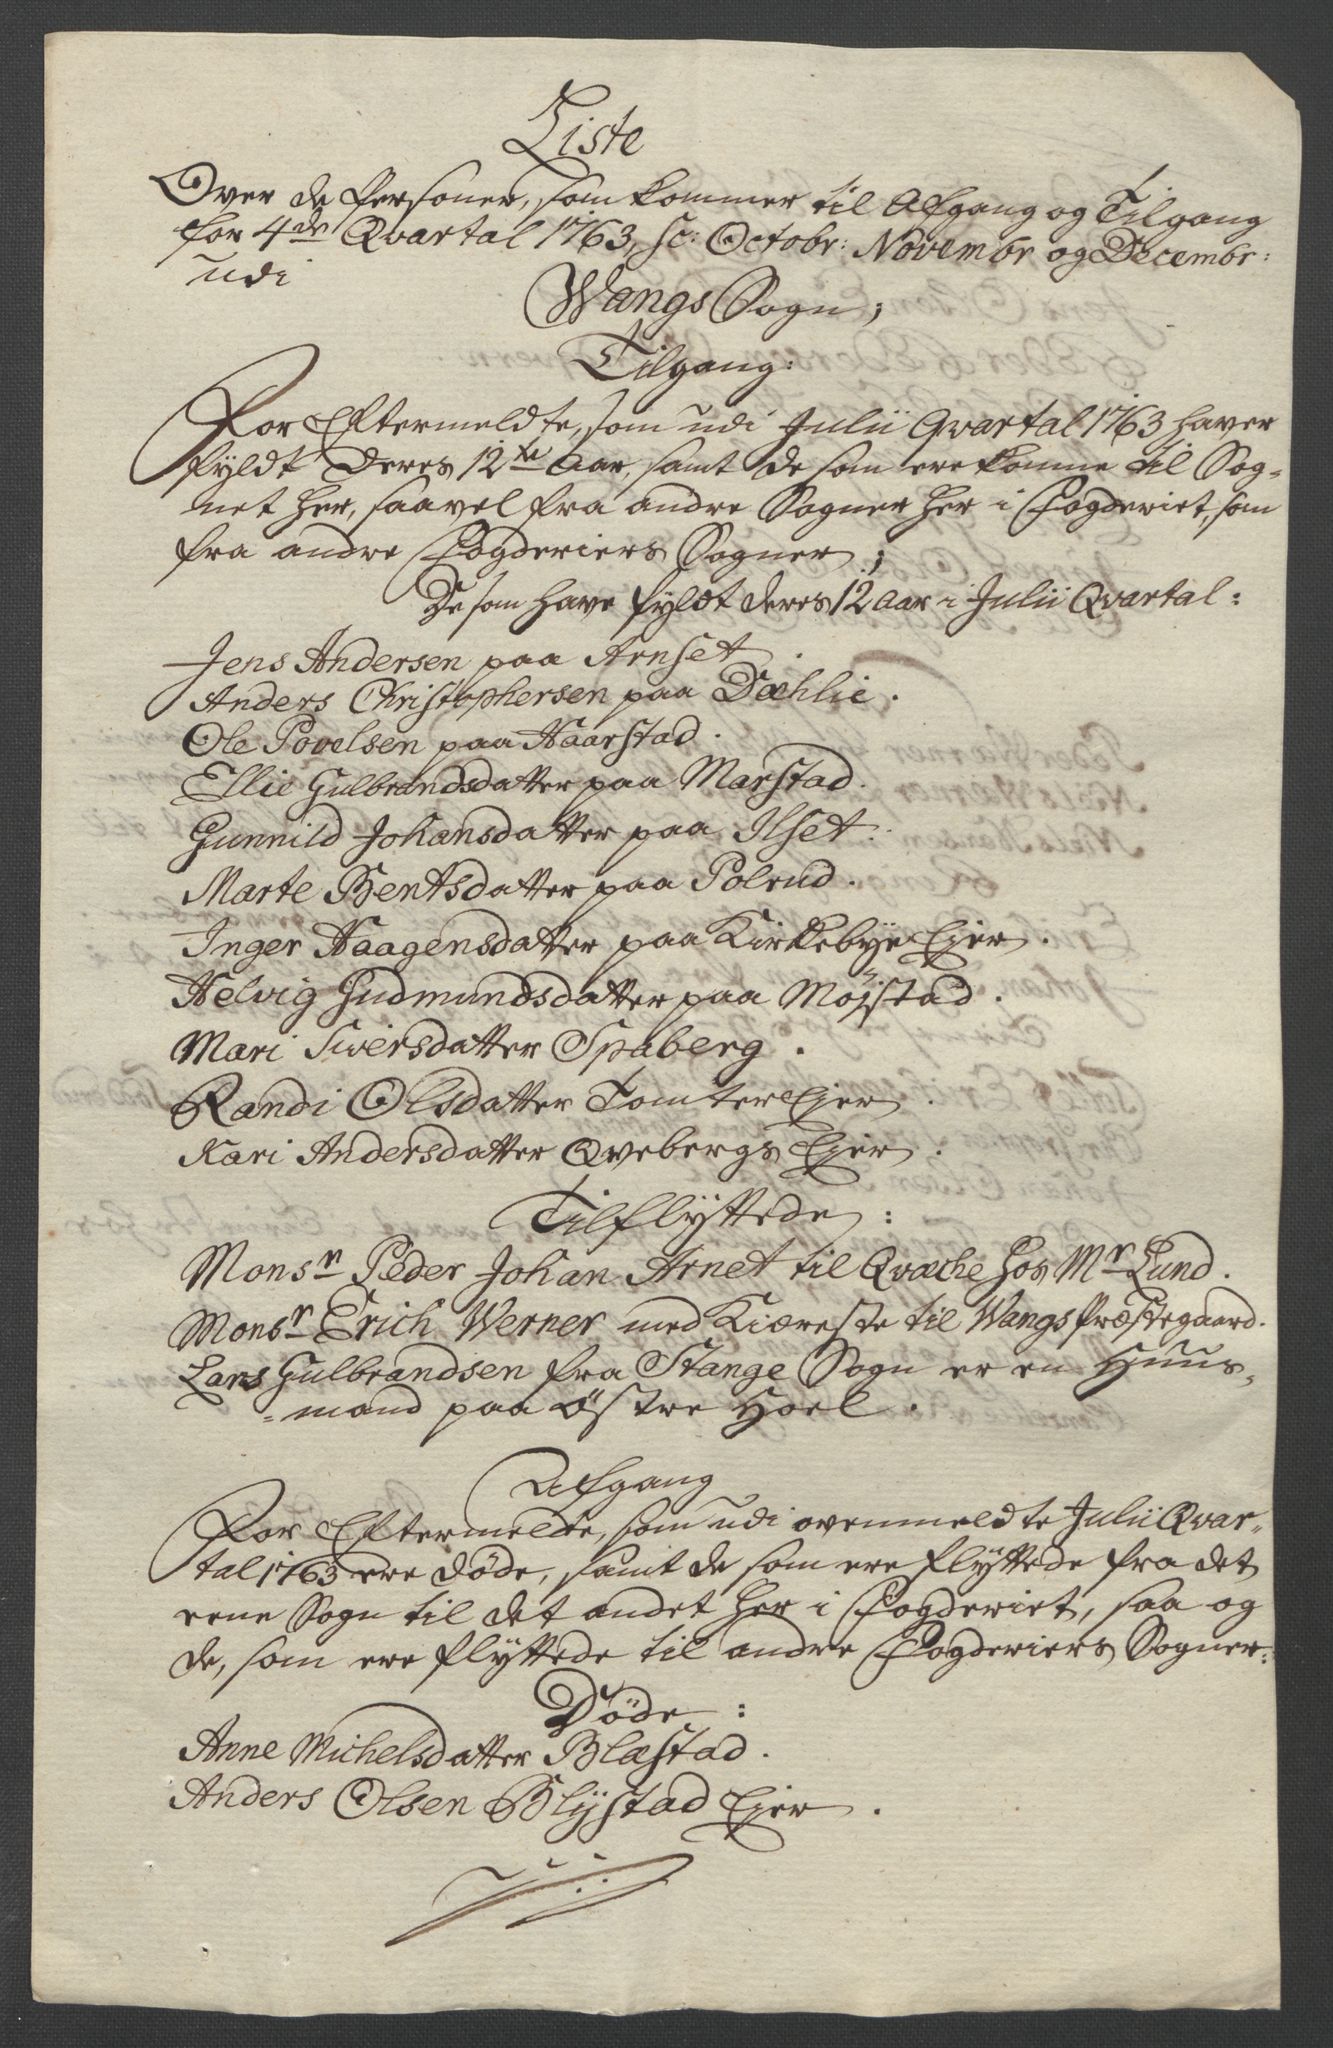 Liste
Over de Personer, som kommer til Afgang og Tilgang
for 4de Qvartal 1763, sc: Octobr: Novembr og Decembr:
udi
Wangs Sogn;
Tilgang:
For Eftermeldte, som udi Julii Qvartal 1763 haver
fyldt deres 12te Aar, samt de som ere komne til Sog-
net her, saavel fra andre Sogner her i Fogderiet, som
fra andre Fogderiers Sogner;
De som have fyldt deres 12 Aar i Julii Qvartal:
Jens Andersen paa Arnset.
Anders Christophersen paa Dæhlie.
Ole Povelsen paa Haarstad.
Ellie Gulbrandsdatter paa Marstad.
Gunnild Johansdatter paa Ilset.
Marte Bentsdatter paa Polrud.
Inger Haagensdatter paa Kirkebye Ejer.
Helvig Gudmundsdatter paa Møjstad.
Mari Siversdatter Spaberg.
Randi Olsdatter Tomter Ejer.
Kari Andersdatter Qvebergs Ejer.
Tilflyttede:
Monsr. Peder Johan Arnet til Qvæche hos Mr. Lund.
Monsr. Erich Werner med Kiæreste til Wangs Præstegaard.
Lars Gulbrandsen fra Stange Sogn er en Huus-
-mand paa Østre Hoel.
Afgang
For Eftermeldte, som udi ovenmeldte Julii Qvar-
tal 1763 ere døde, samt de som ere flyttede fra det
eene Sogn til det andet her i Fogderiet, saa og
de, som ere flyttede til andre Fogderiers Sogner:
Døde:
Anne Michelsdatter Blæstad.
Anders Olsen Blÿstad Ejer.